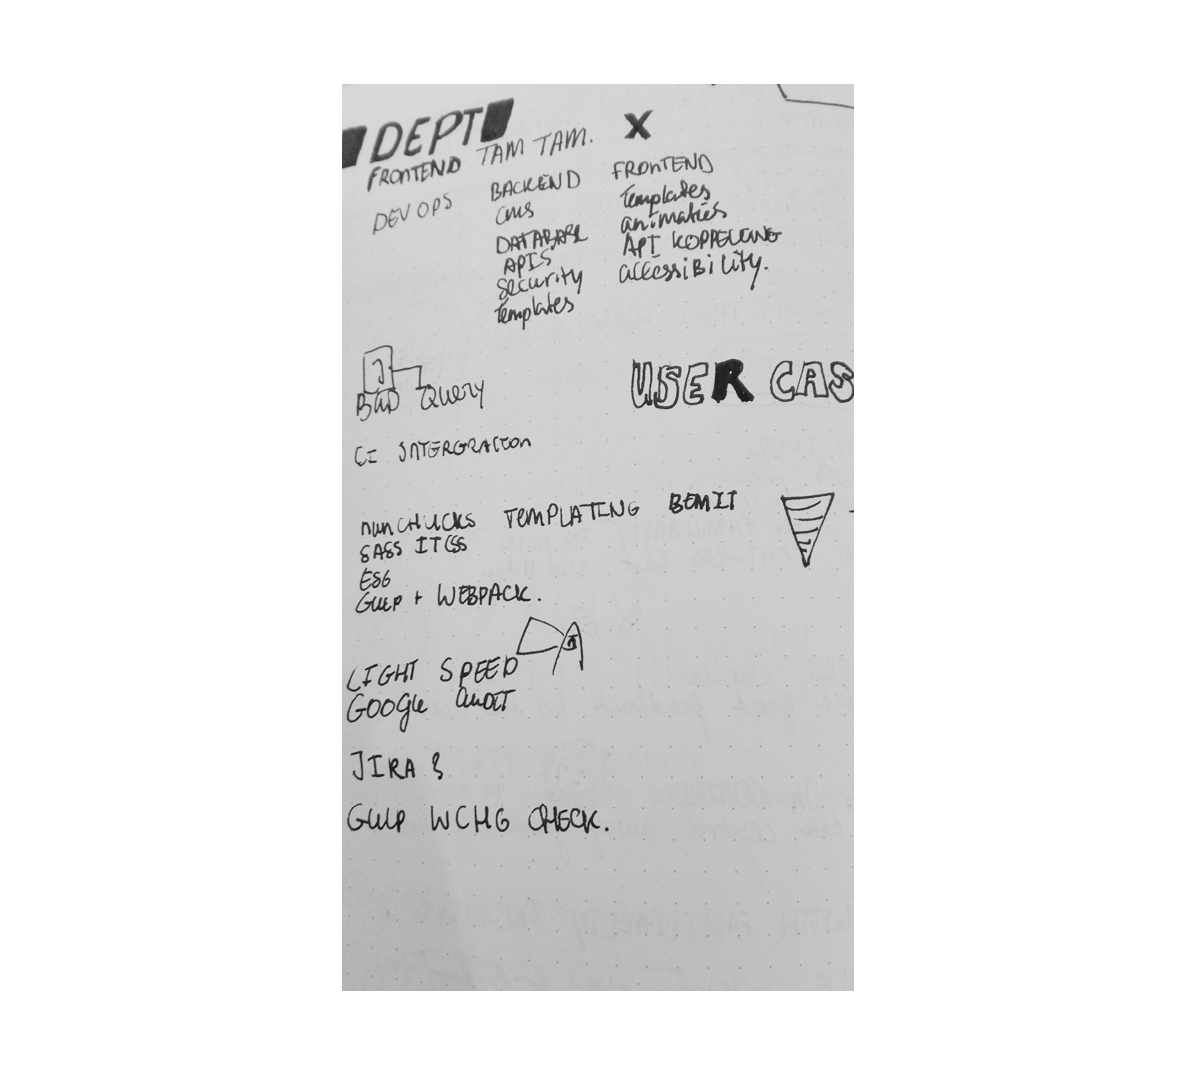 DEPT TAM TAM. X
FRONTEND
DEV OPS
BACKEND
CMS
DATABASE
APIS
Security
Templates
FRONTEND
Templates
animaties
API KOPPELING
accessibility.
BAD Query
USER CAS
CI INTERGRATION
nunCHUCKS TEMPLATING BEMIT
SASS ITCSS
ES6
Gulp + WEBPACK.
LIGHT SPEED
GOOGle audit
JIRA &
Gulp WCHG CHECK.